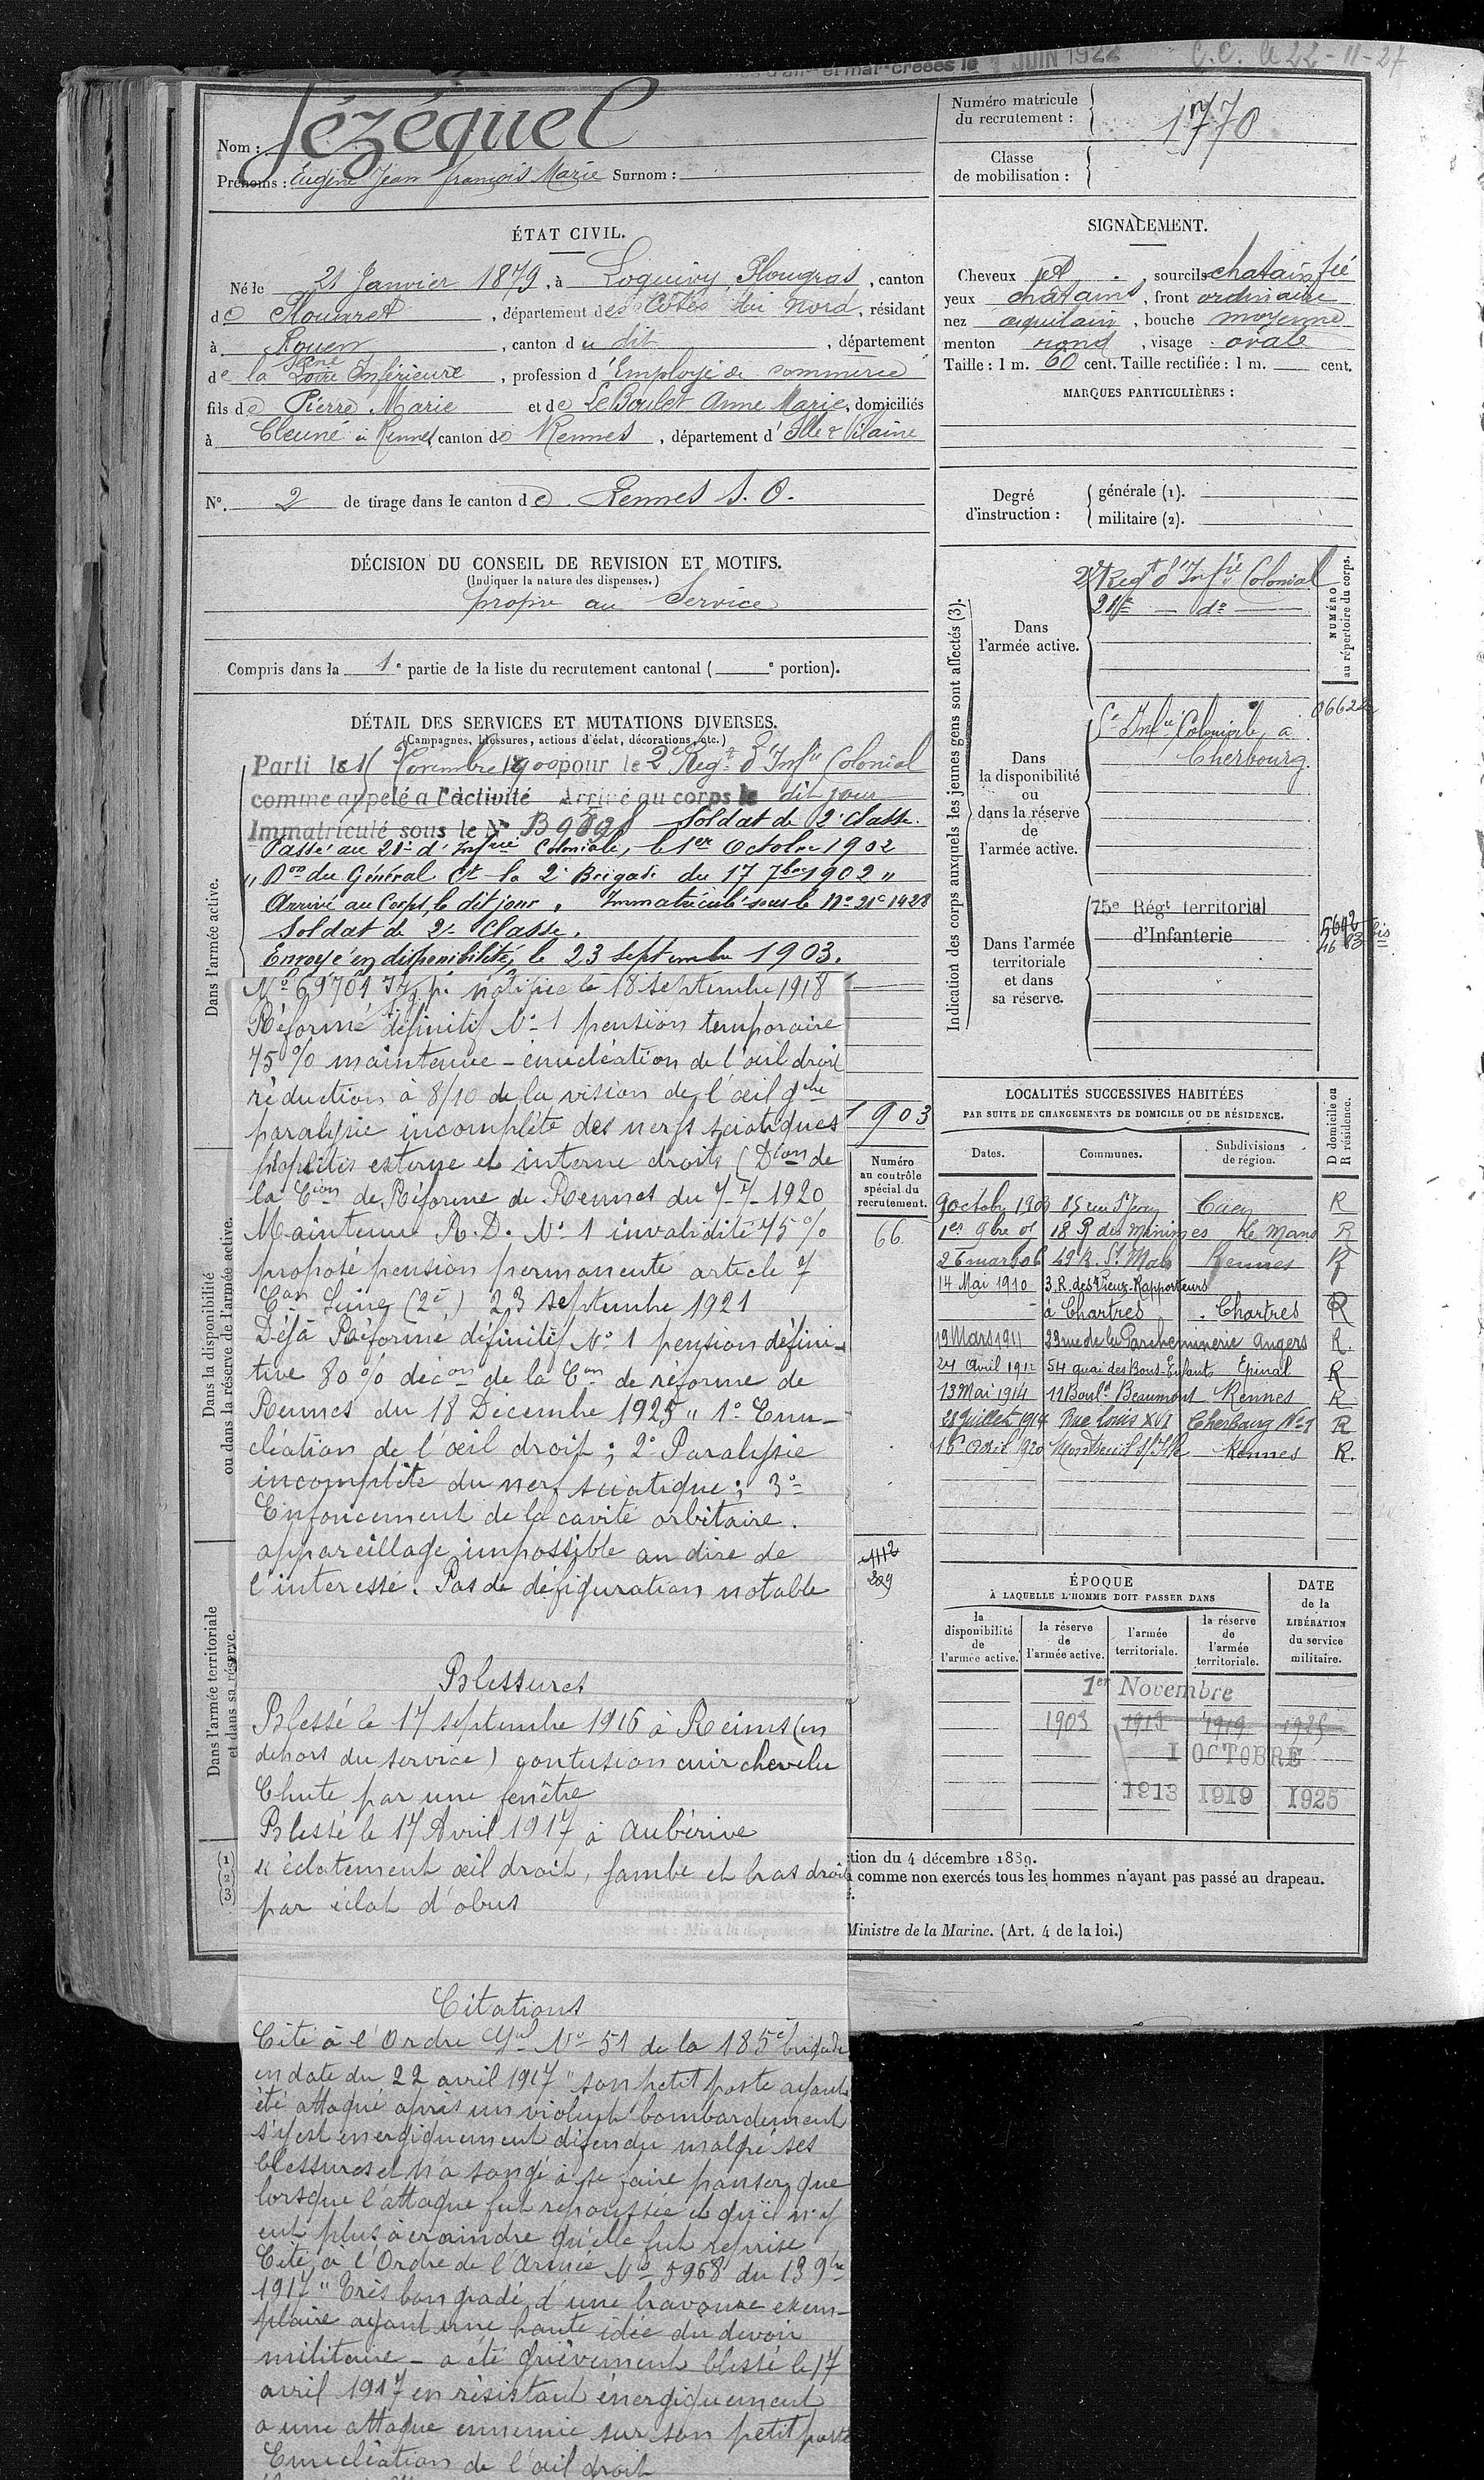 JUIN 1922
C.C. le 22-11-27
Nom : Jézéquel
Prénoms : Eugène Jean François Marie Surnom :
Numéro matricule du recrutement : 1770
Classe de mobilisation :
ÉTAT CIVIL.
Né le 21 Janvier 1879, à Loguivy Plougras, canton
de Plouaret, département des Côtes du Nord, résidant
à Rouen, canton du dit, département
de la Seine Loire Inférieure, profession d'Employé de commerce
fils de Pierre Marie et de Le Boulet Anne Marie, domiciliés
à Cleuné à Rennes canton de Rennes, département d'Ille & Vilaine
N°. 2 de tirage dans le canton de Rennes S.O.
SIGNALEMENT.
Cheveux et, sourcils chatain fcé
yeux châtains, front ordinaire
nez aquilain, bouche moyenne
menton rond, visage ovale
Taille : 1 m. 60 cent. Taille rectifiée : 1 m. cent.
MARQUES PARTICULIÈRES :
Degré d'instruction : générale (1).
militaire (2).
DÉCISION DU CONSEIL DE REVISION ET MOTIFS.
(Indiquer la nature des dispenses.)
propre au Service
Compris dans la 1e partie de la liste du recrutement cantonal ( e portion).
DÉTAIL DES SERVICES ET MUTATIONS DIVERSES.
(Campagnes, blessures, actions d'éclat, décorations, etc.)
Dans l'armée active.
Parti le 15 Novembre 1900 pour le 2e Regt d'Infie Colonial
comme appelé à l'activité Arrivé au corps le dit jour
Immatriculé sous le N° Soldat de 2e classe.
Passé au 21e d'Infrie Coloniale, le 1er Octobre 1902
"Don du Général Ct la 2e Brigade du 17 7bre 1902"
Arrivé au Corps, le dit jour, Immatriculé sous le No 21c 1428
Soldat de 2e Classe.
Envoyé en disponibilité, le 23 septembre 1903.
No 69701 notifiée le 18 septembre 1918
Réformé définitif No 1 pension temporaire
75% maintenue - énucléation de l'œil droit
réduction à 8/10 de la vision de l'œil gche
paralysie incomplète des nerfs sciatiques
poplités externe et interne droits (Dion de
la Cion de Réforme de Rennes du 7-7-1920
Maintenu R.D. No 1 invalidité 75%
proposé pension permanente article 7
Con Seine (2e) 23 septembre 1921
Déjà Réformé définitif No 1 pension défini-
tive 80% décon de la Con de réforme de
Rennes du 18 Décembre 1925 " 1° Enu-
cléation de l'œil droit ; 2° Paralysie
incomplète du nerf sciatique ; 3°
Enfoncement de la cavité orbitaire.
appareillage impossible au dire de
l'interessé. Pas de défiguration notable
Blessures
Blessé le 17 septembre 1916 à Reims (en
dehors du service) contusion cuir chevelu
Chute par une fenêtre
Blessé le 17 Avril 1917 à Aubérive
" éclatement œil droit, jambe et bras droit
par éclat d'obus
Citations
Cité à l'Ordre Gal No 51 de la 185e brigade
en date du 22 avril 1917 "son petit poste ayant
été attaqué après un violent bombardement
s'y est énergiquement défendu malgré ses
blessures et n'a songé à se faire panser que
lorsque l'attaque fut repoussée et qu'il n'y
eut plus à craindre qu'elle fut reprise
Cité à l'Ordre de l'Armée No 5968 du 13 9bre
1917 "Très bon gradé d'une bravoure exem-
plaire ayant une haute idée du devoir
militaire - a été grièvement blessé le 17
avril 1917 en résistant énergiquement
à une attaque ennemie sur son petit poste
Enucléation de l'œil droit
Dans la disponibilité
ou dans la réserve de l'armée active.
Dans l'armée territoriale
et dans sa réserve.
(1)
(2)
(3)
1903
Numéro au contrôle spécial du recrutement.
66
1112
209
Indication des corps auxquels les jeunes gens sont affectés (3).
NUMÉRO au répertoire du corps.
Dans l'armée active.
2e Regt d'Infie Colonial
21e do
Dans la disponibilité ou dans la réserve de l'armée active.
Infie Coloniale à
Cherbourg.
Dans l'armée territoriale et dans sa réserve.
75e Régt territorial
d'Infanterie
5642 bis
LOCALITÉS SUCCESSIVES HABITÉES
PAR SUITE DE CHANGEMENTS DE DOMICILE OU DE RÉSIDENCE.
D domicile ou R résidence.
Dates. Communes. Subdivisions de région.
9 octobre 1903 85 rue St Jean Caen R
1er 9bre 05 18 R des Minimes Le Mans R
26 mars 06 49 R. St Malo Rennes R
14 Mai 1910 3 R. des Vieux-Rapporteurs
à Chartres Chartres R
19 Mars 1911 23 rue de la Parcheminerie Angers R.
24 Avril 1912 54 quai des Bons-Enfants Epinal R
13 Mai 1914 11 Boulv Beaumont Rennes R
28 Juillet 1914 Rue Louis XVI Cherbourg No 1 R
16 Avril 1920 Montreuil s/ Ille Rennes R.
ÉPOQUE
À LAQUELLE L'HOMME DOIT PASSER DANS
DATE de la LIBÉRATION du service militaire.
la disponibilité de l'armée active. la réserve de l'armée active. l'armée territoriale. la réserve de l'armée territoriale.
1er Novembre
1903 1913 1919 1925
1 OCTOBRE
1913 1919 1925
tion du 4 décembre 1889.
comme non exercés tous les hommes n'ayant pas passé au drapeau.
Ministre de la Marine. (Art. 4 de la loi.)